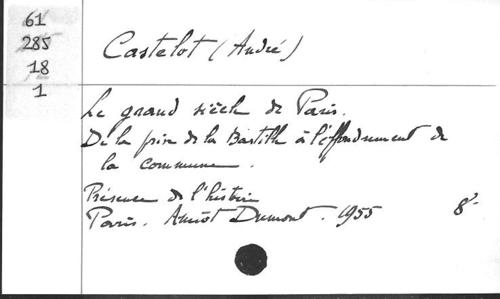 61
285
18
1
Castelot (André)
Le grand siècle de Paris.
De la prise de la Bastille à l'effondrement de
la commune.
Présence de l'histoire
Paris. Amiot Dumont. 1955 8°